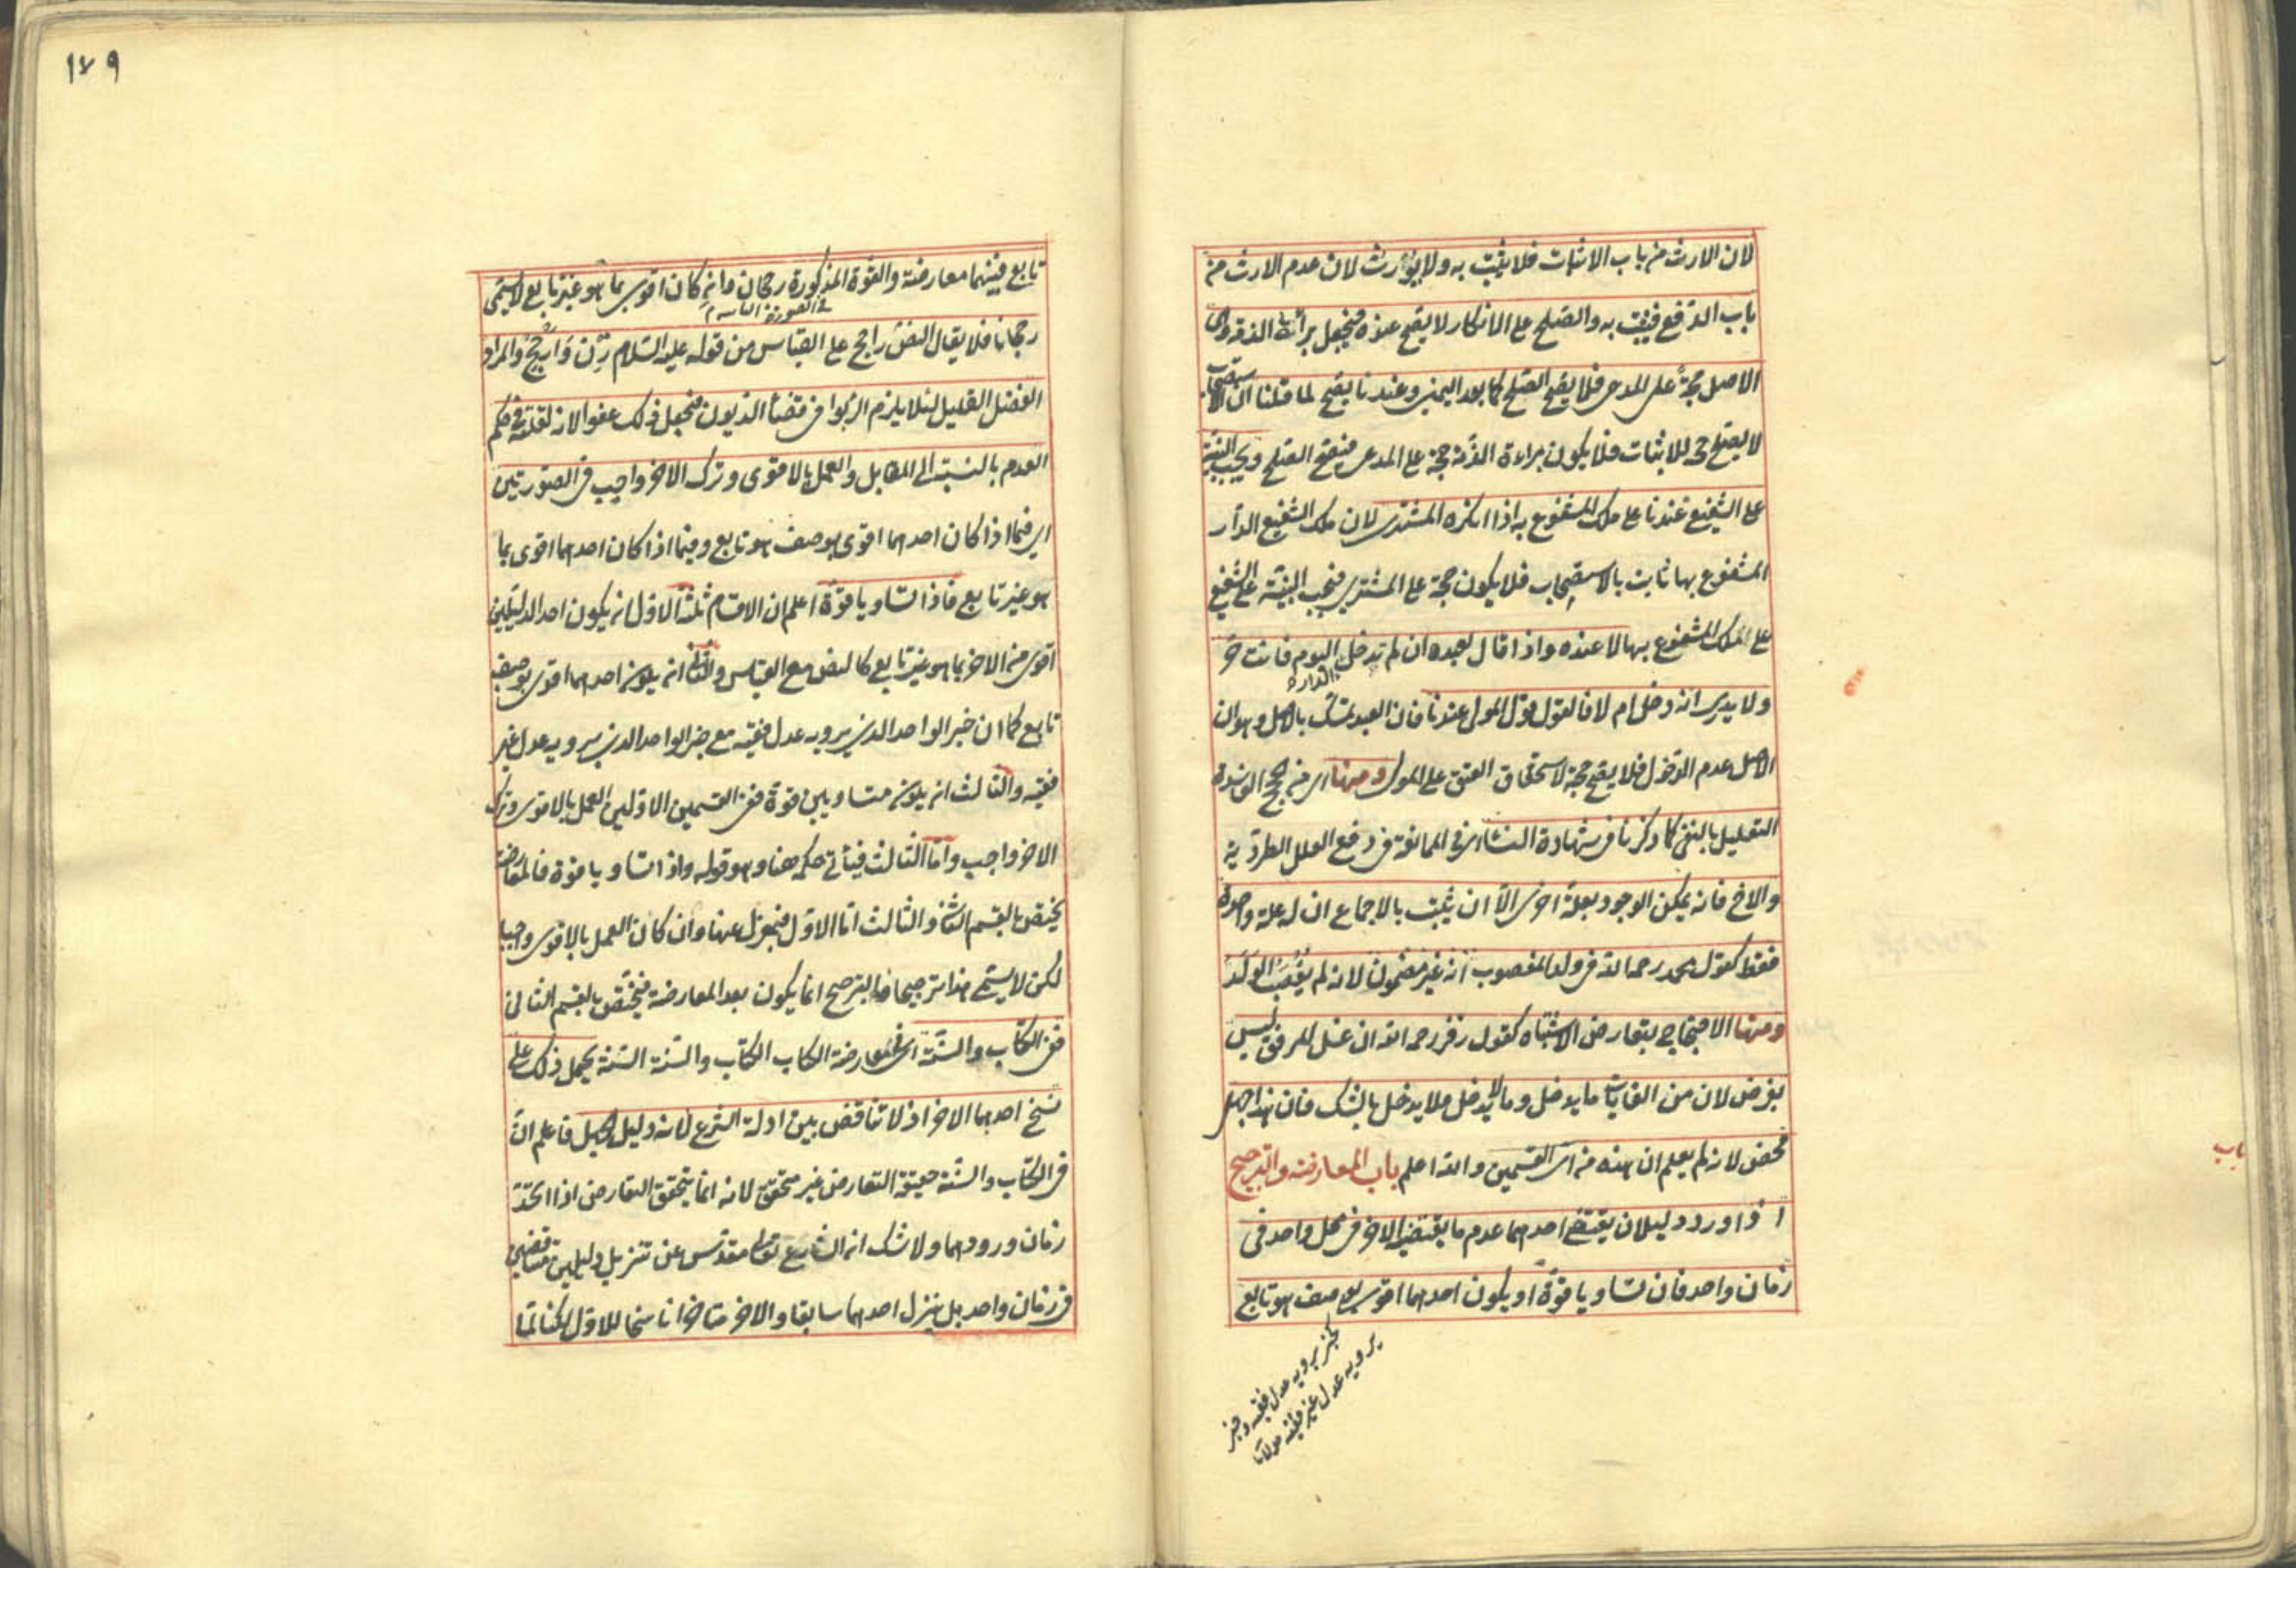 لان الارث من باب الاثبات فلا يثبت به ولا يورث لان عدم الارث من
باب الدفع فيثبت به والصلح على الانكار لا يصح عنده فيجعل براءة الذمة وهى
الاصل حجة على المدعى فلا يصح الصلح كما بعد اليمين وعندنا يصح لما قلنا ان الاستصحاب
لا يصلح حجة للاثبات فلا يكون براءة الذمة حجة على المدعى فيصح الصلح ويجب البينة
على الشفيع عندنا على ملك المشفوع به اذا انكره المشترى لان ملك الشفيع الدار
المشفوع بها ثابت بالاستصحاب فلا يكون حجة على المشترى فيجب البينة على الشفيع
على الملك المشفوع بها لا عنده واذا قال لعبده ان لم تدخل الدار اليوم فانت حر
ولا يدرى انه دخل ام لا فالقول قول المولى عندنا فان العبد تمسك بالاصل وهو ان
الاصل عدم الدخول فلا يصح حجة لاستحقاق العتق على المولى ومنها اى من الحجج الفاسدة
التعليل بالنفى كما ذكرنا فى شهادة النساء اى فى الممانعة فى دفع العلل الطردية
والاخ فانه يمكن الوجود بعلة اخرى الا ان يثبت بالاجماع ان له علة واحدة
فقط كقول محمد رحمه الله فى ولد المغصوب انه غير مضمون لانه لم يغصب الولد
ومنها الاحتجاج بتعارض الاشباه كقول زفر رحمه الله ان غسل المرفق ليس
بفرض لان من الغايات ما يدخل وما لا يدخل فلا يدخل بالشك فان هذا جهل
محض لانه لم يعلم ان هذه من اى القسمين والله اعلم باب المعارضة والترجيح
اذا ورد دليلان يقتضى احدهما عدم ما يقتضيه الاخر فى محل واحد فى
زمان واحد فان تساويا قوة او يكون احدهما اقوى بوصف هو تابع
كخبر يرويه عدل فقيه وخبر
يرويه عدل غير فقيه
باب
١٧٩
تابع فبينهما معارضة والقوة المذكورة رجحان وان كان اقوى بما هو غير تابع لا يسمى
رجحانا فلا يقال النص راجح على القياس من قوله عليه السلام زن وارجح والمراد
الفضل القليل لئلا يلزم الربوا فى قضاء الديون فيجعل ذلك عفوا لانه لقلته فى حكم
العدم بالنسبة الى المقابل والعمل بالاقوى وترك الاخر واجب فى الصورتين
اى فيما اذا كان احدهما اقوى بوصف هو تابع وفيما اذا كان احدهما اقوى بما
هو غير تابع فاذا تساويا قوة اعلم ان الاقسام ثلثة الاول ان يكون احد الدليلين
اقوى من الاخر بما هو غير تابع كالنص مع القياس والثانى ان يكون احدهما اقوى بوصف
تابع كما ان خبر الواحد الذى يرويه عدل فقيه مع خبر الواحد الذى يرويه عدل غير
فقيه والثالث ان يكونا متساويين قوة ففى القسمين الاولين العمل بالاقوى وترك
الاخر واجب واما الثالث فيأتى حكمه هنا وهو قوله واذا تساويا قوة فالمعارضة
يختص بالقسم الثانى والثالث اما الاول فبمعزل عنها وان كان العمل بالاقوى واجبا
لكن لا يسمى هذا ترجيحا فالترجيح انما يكون بعد المعارضة فيختص بالقسم الثانى
ففى الكتاب والسنة اى فى معارضة الكتاب الكتاب والسنة السنة يحمل ذلك على
نسخ احدهما الاخر اذ لا تناقض بين ادلة الشرع لانه دليل الجهل فاعلم ان
فى الكتاب والسنة حقيقة التعارض غير متحقق لانه انما يتحقق التعارض اذا اتحد
زمان ورودهما ولا شك ان الشارع تعالى مقدس عن تنزيل دليلين متناقضين
فى زمان واحد بل ينزل احدهما سابقا والاخر متأخرا ناسخا للاول لكنا لما